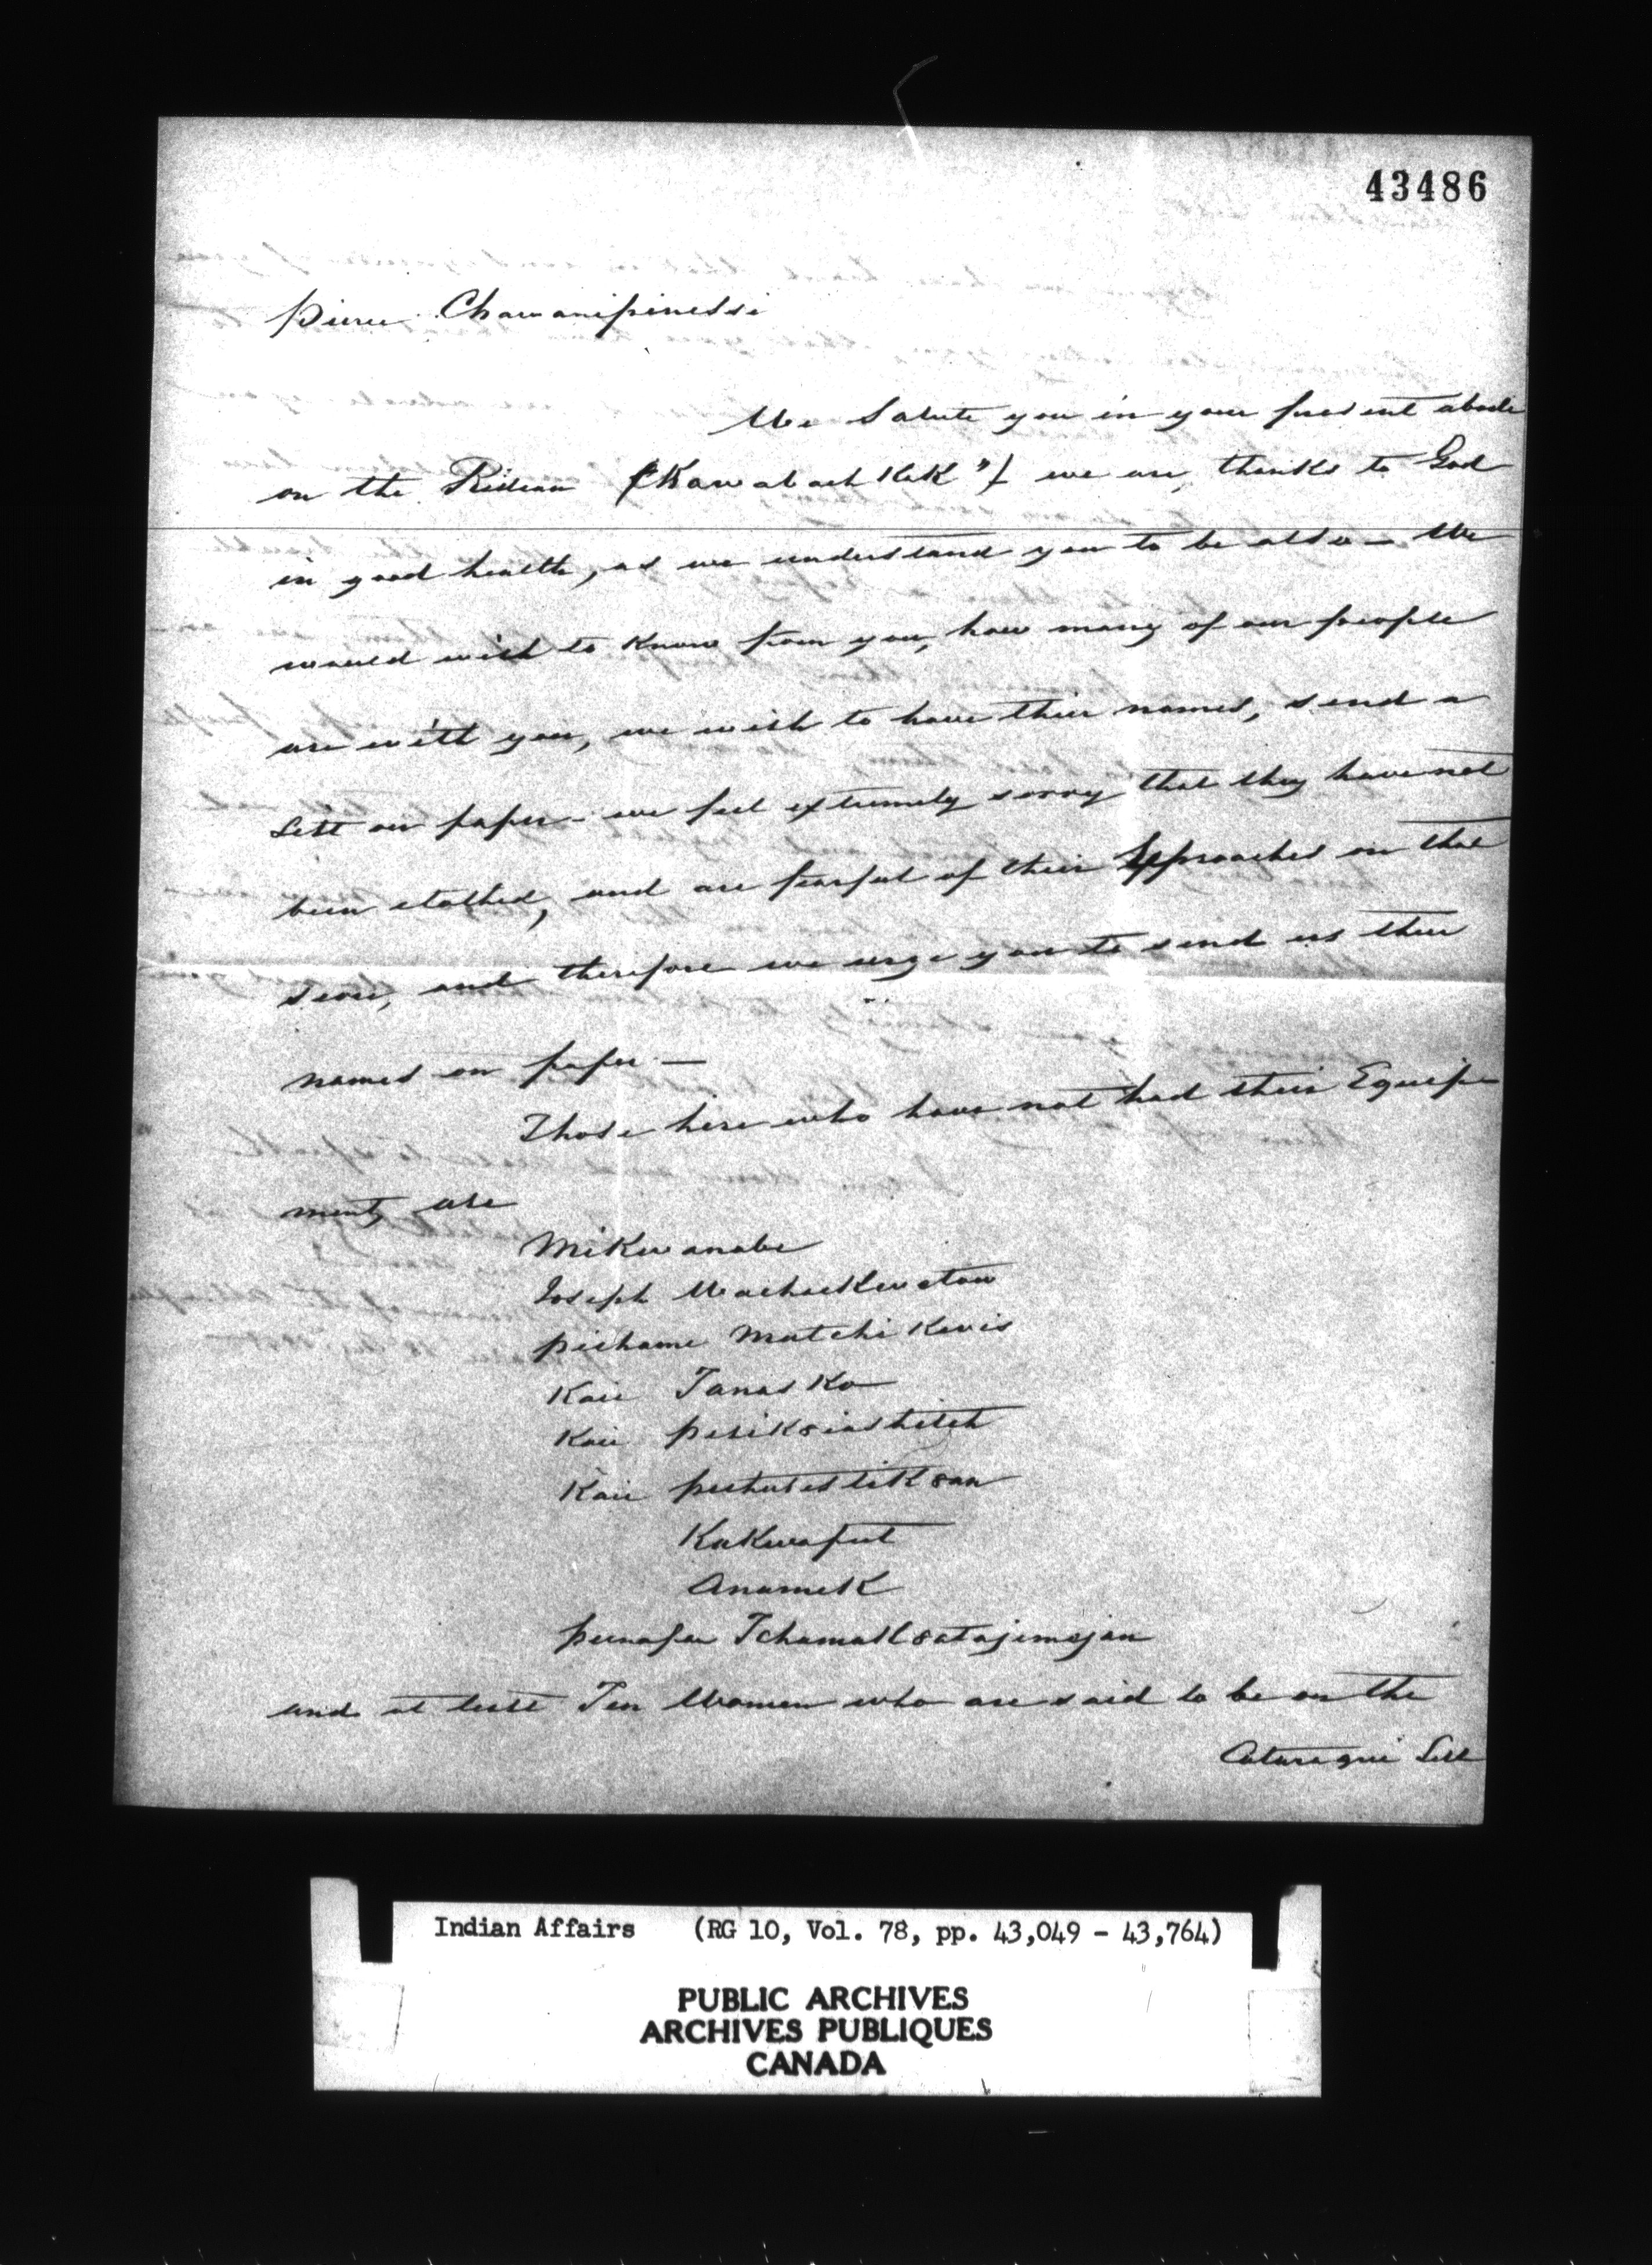 43486
Pierre Chawanipinessi
We Salute you in your present abode
on the Rideau ("Kawabachkek") we are, thanks to God
in good health, as we understand you to be also — We
would wish to know from you, how many of our people
are with you, we wish to have their names, send a
List on paper — we feel extremely sorry that they have not
been clothed, and are fearful of their reproaches on that
score, and therefore we urge you to send us their
names on paper —
Those here who have not had their Equip-
ment, are
Mikwanabe
Joseph
Matchikewis
Kaie Tanasko
Kaie
Kaie
Kakwapeet
Anamek
and at least Ten Women who are said to be on the
Cataraqui
Indian Affairs (RG 10, Vol. 78, pp. 43,049 - 43,764)
PUBLIC ARCHIVES
ARCHIVES PUBLIQUES
CANADA